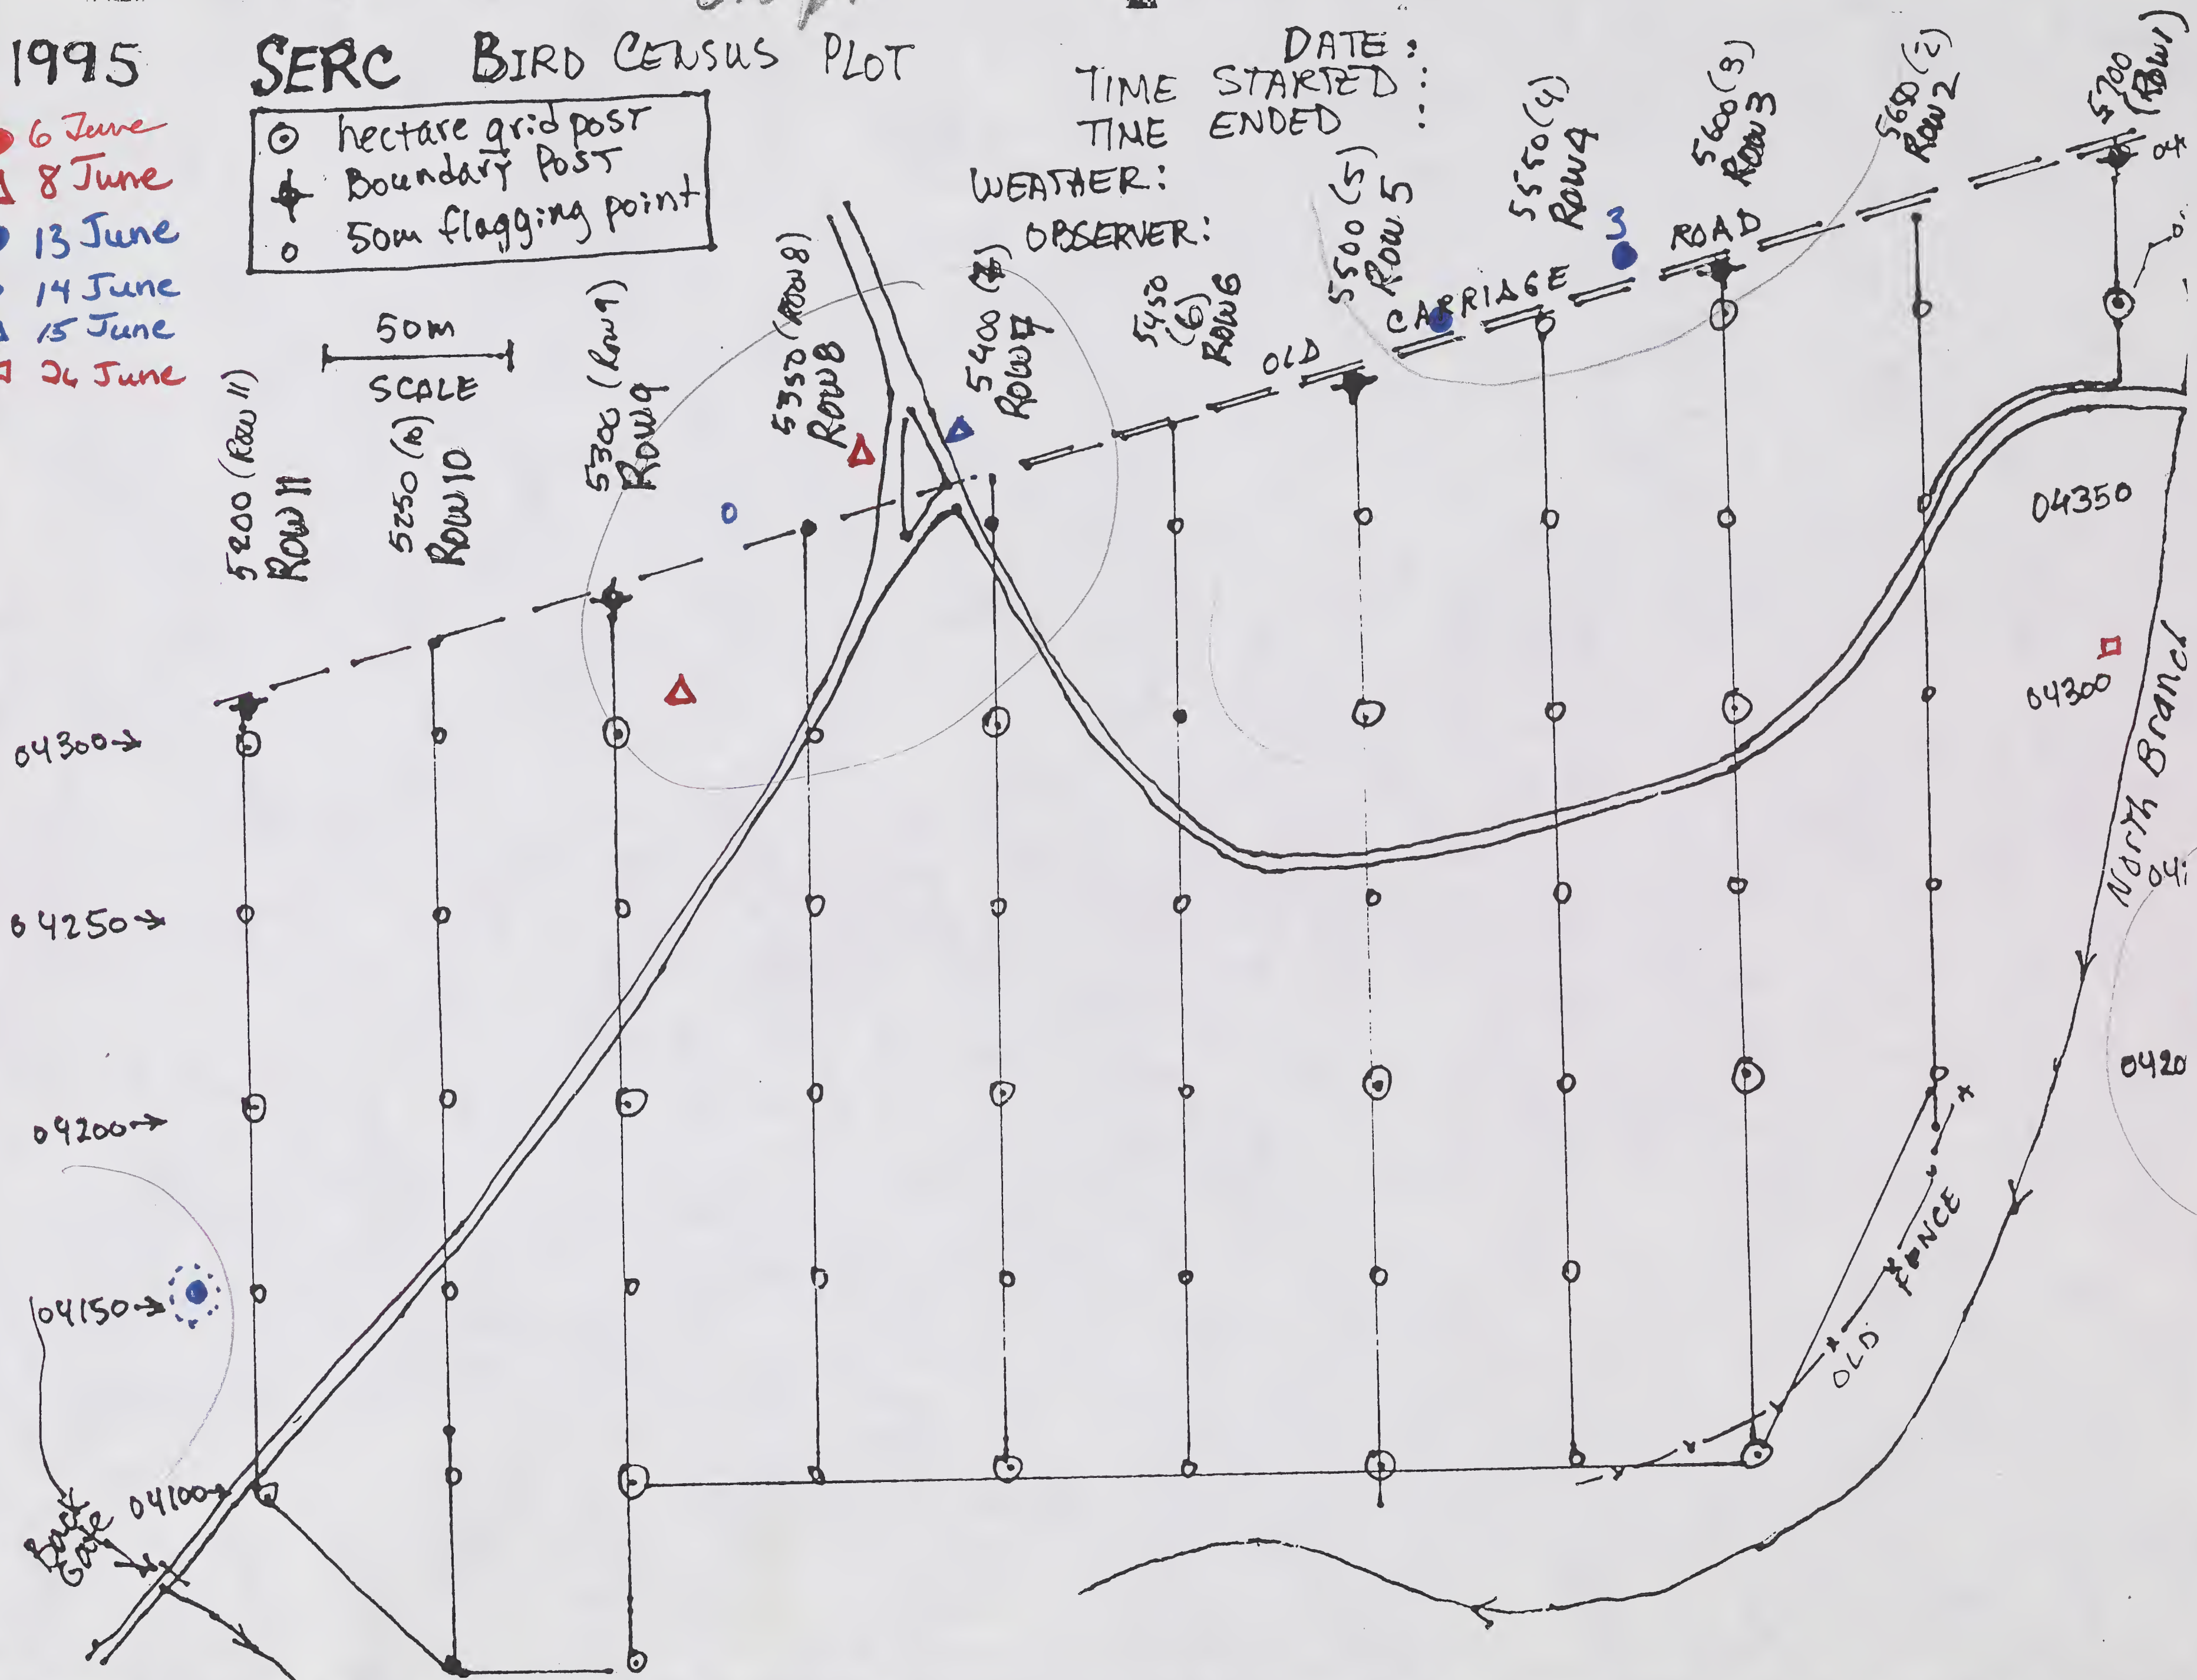 1995
SERC BIRD CENSUS PLOT
DATE:
TIME STARTED:
TIME ENDED :
WEATHER:
OBSERVER:
6 June
8 June
13 June
14 June
15 June
26 June
hectare gridpost
Boundary Post
50m flagging point
50m
SCALE
5200 (Row 11)
Row 11
5250 (10)
Row 10
5300 (Row 9)
Row 9
5350 (Row 8)
Row 8
5400 (7)
Row 7
5450
(6)
Row 6
5500 (5)
Row 5
5550 (4)
Row 4
5600 (3)
Row 3
5650 (2)
Row 2
5700
(Row 1)
3
OLD CARRIAGE ROAD
04350
04300
North Branch
0420
04300→
04250→
04200→
04150→
04100→
Back
Gate
OLD FENCE